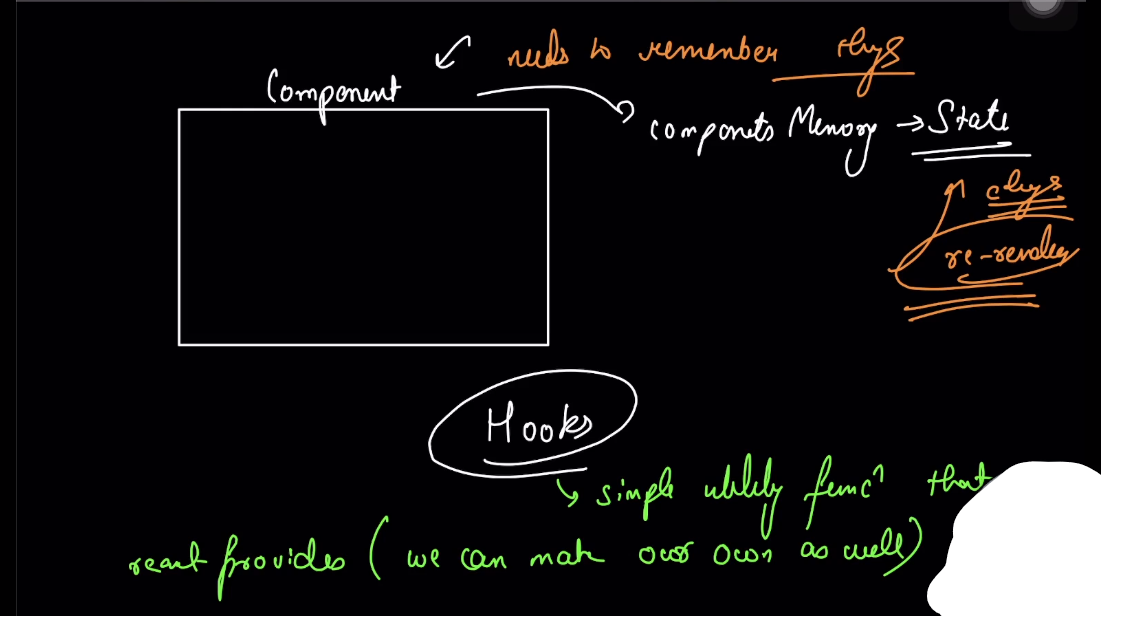 needs to remember thgs
Component
componets Memory → State
chgs
re-render
Hooks
↳ simple utility funcⁿ that
react provides ( we can make our own as well)